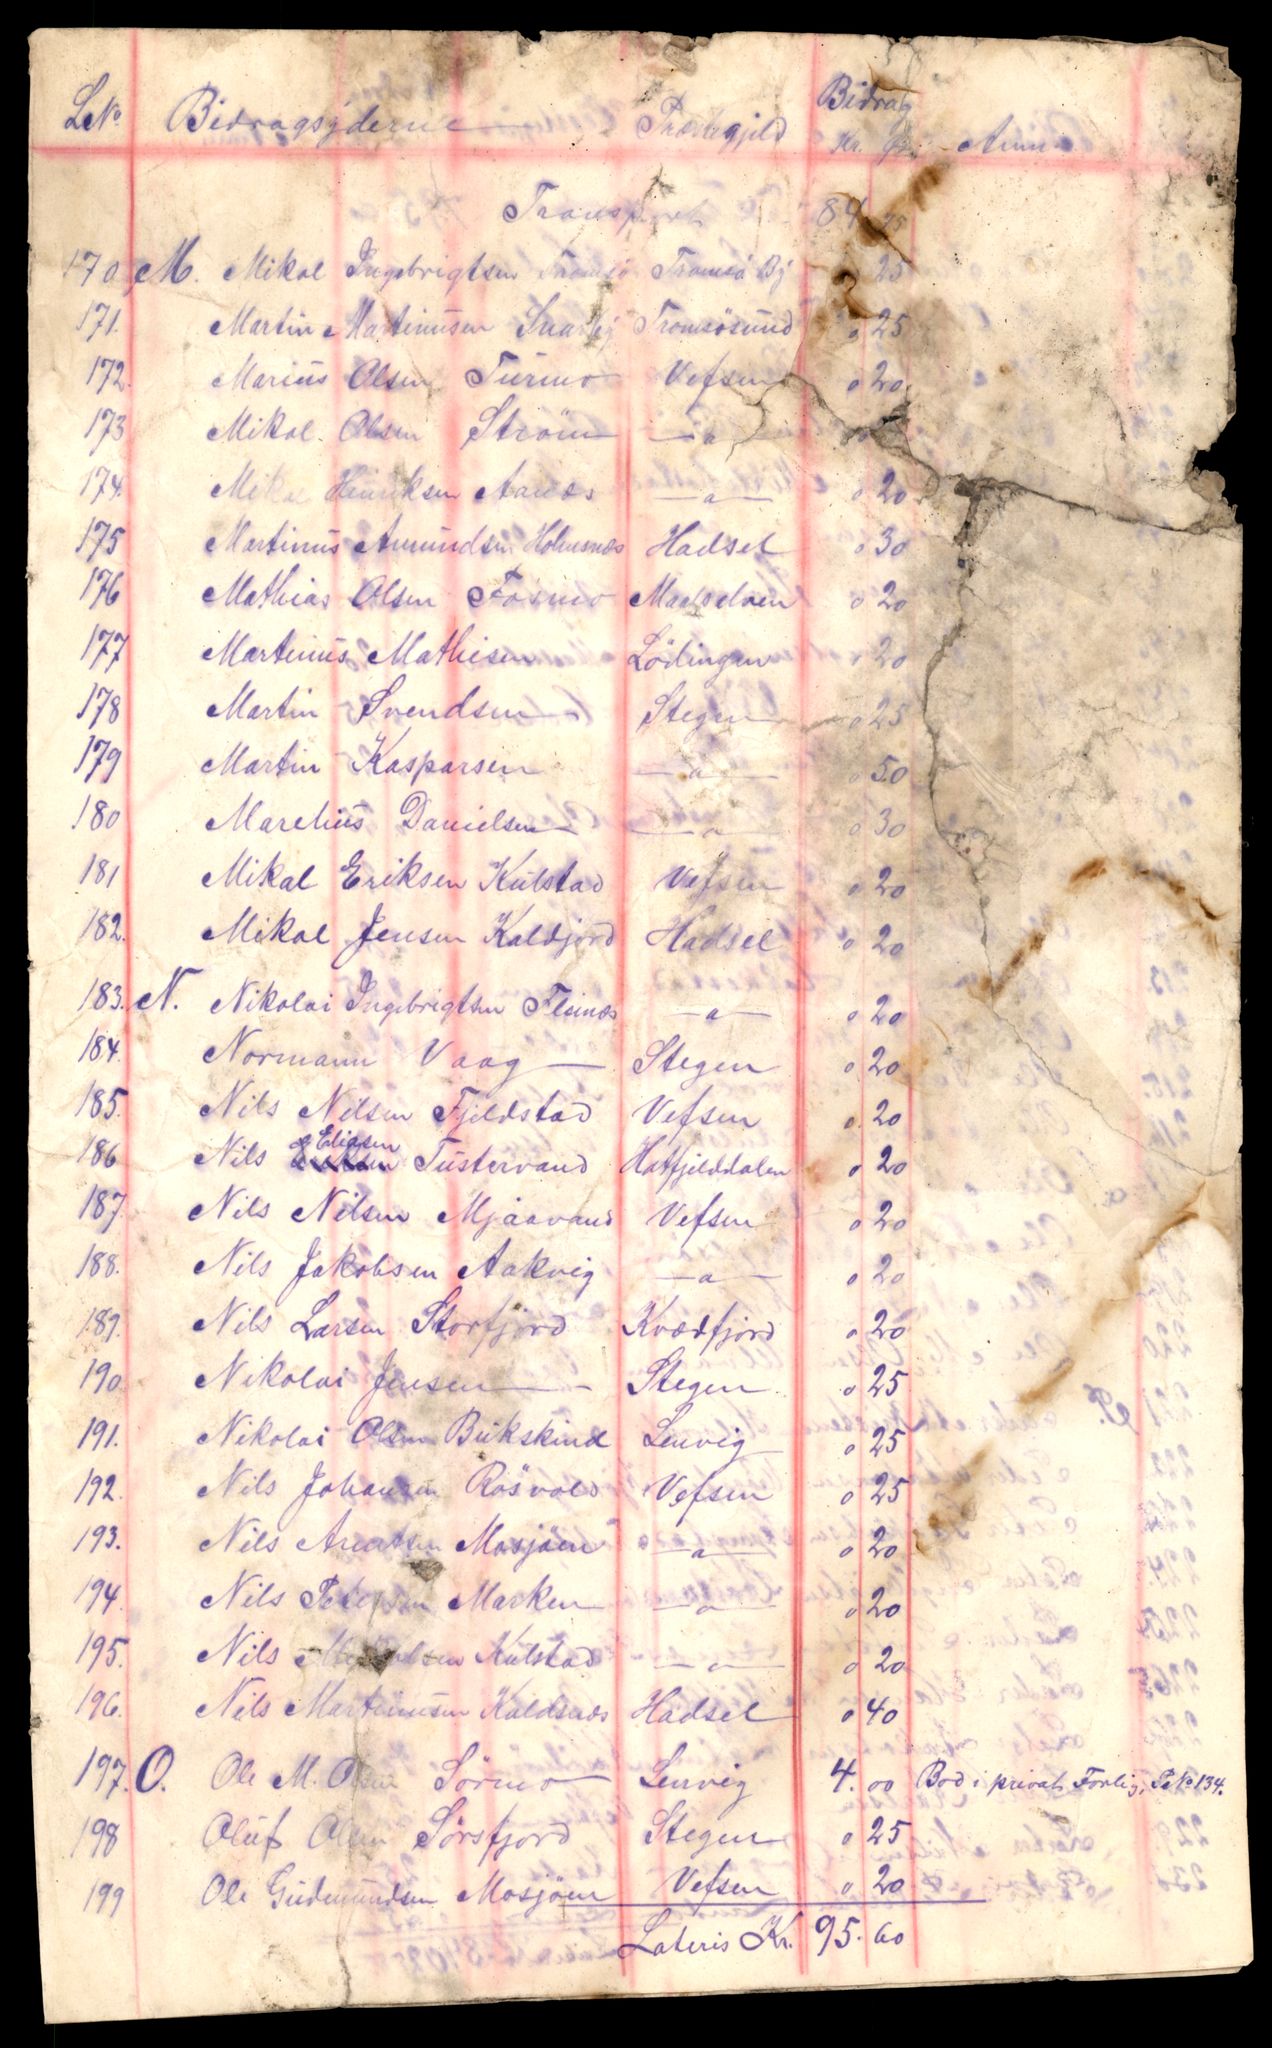 LNo. Bidragsyderne Præstegjeld Bidrag Kr. Øre Anm
Transport 84 25
170 M. Mikal Ingebrigtsen Tromsö Tromsö By 25
171. Martin Martinussen Snarby Tromsösund " 25
172. Marius Olsen Turmo Vefsen " 20
173 Mikal Olsen Ström — " —
174. Mikal Henriksen Aanæs — " — " 20
175 Martinus Amundsen Holmsnæs Hadsel " 30
176 Mathias Olsen Fosmo Maalselven " 20
177 Martinus Mathisen Lödingen " 20
178 Martin Svendsen Stegen " 25
179 Martin Kasparsen — " — " 50
180 Marelius Danielsen — " — " 30
181 Mikal Eriksen Kulstad Vefsen " 20
182. Mikal Jensen Kaldfjord Hadsel " 20
183. N. Nikolai Ingebrigtsen Flesnæs — " — " 20
184. Normann Vaag — Stegen " 20
185. Nils Nilsen Fjeldstad Vefsen " 20
186 Nils Eliasen Tustervand Hatfjelddalen " 20
187 Nils Nilsen Mjaavand Vefsen " 20
188. Nils Jakobsen Aakvig — " — " 20
189. Nils Larsen Storfjord Kvædfjord " 20
190 Nikolai Jensen — Stegen " 25
191. Nikolai Olsen Bukskind Lenvig " 25
192. Nils Johansen Rösvold Vefsen " 25
193. Nils Arentsen Mosjöen — " — " 20
194. Nils Petersen Marken — " — " 20
195. Nils Kulstad — " — " 20
196. Nils Martinusen Kaldsnes Hadsel " 40
197. O. Ole M. Olsen Sörmo Lenvig 4. 00 Bod i privat Forlig, P. No 134.
198 Oluf Olsen Sörsfjord Stegen " 25
199 Ole Gudemundsen Mosjöen Vefsen " 20
Lateris Kr. 95. 60